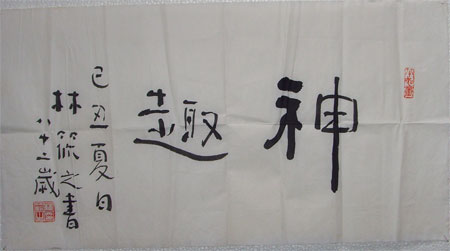 神趣
己丑夏日
林筱之書
八十二歲